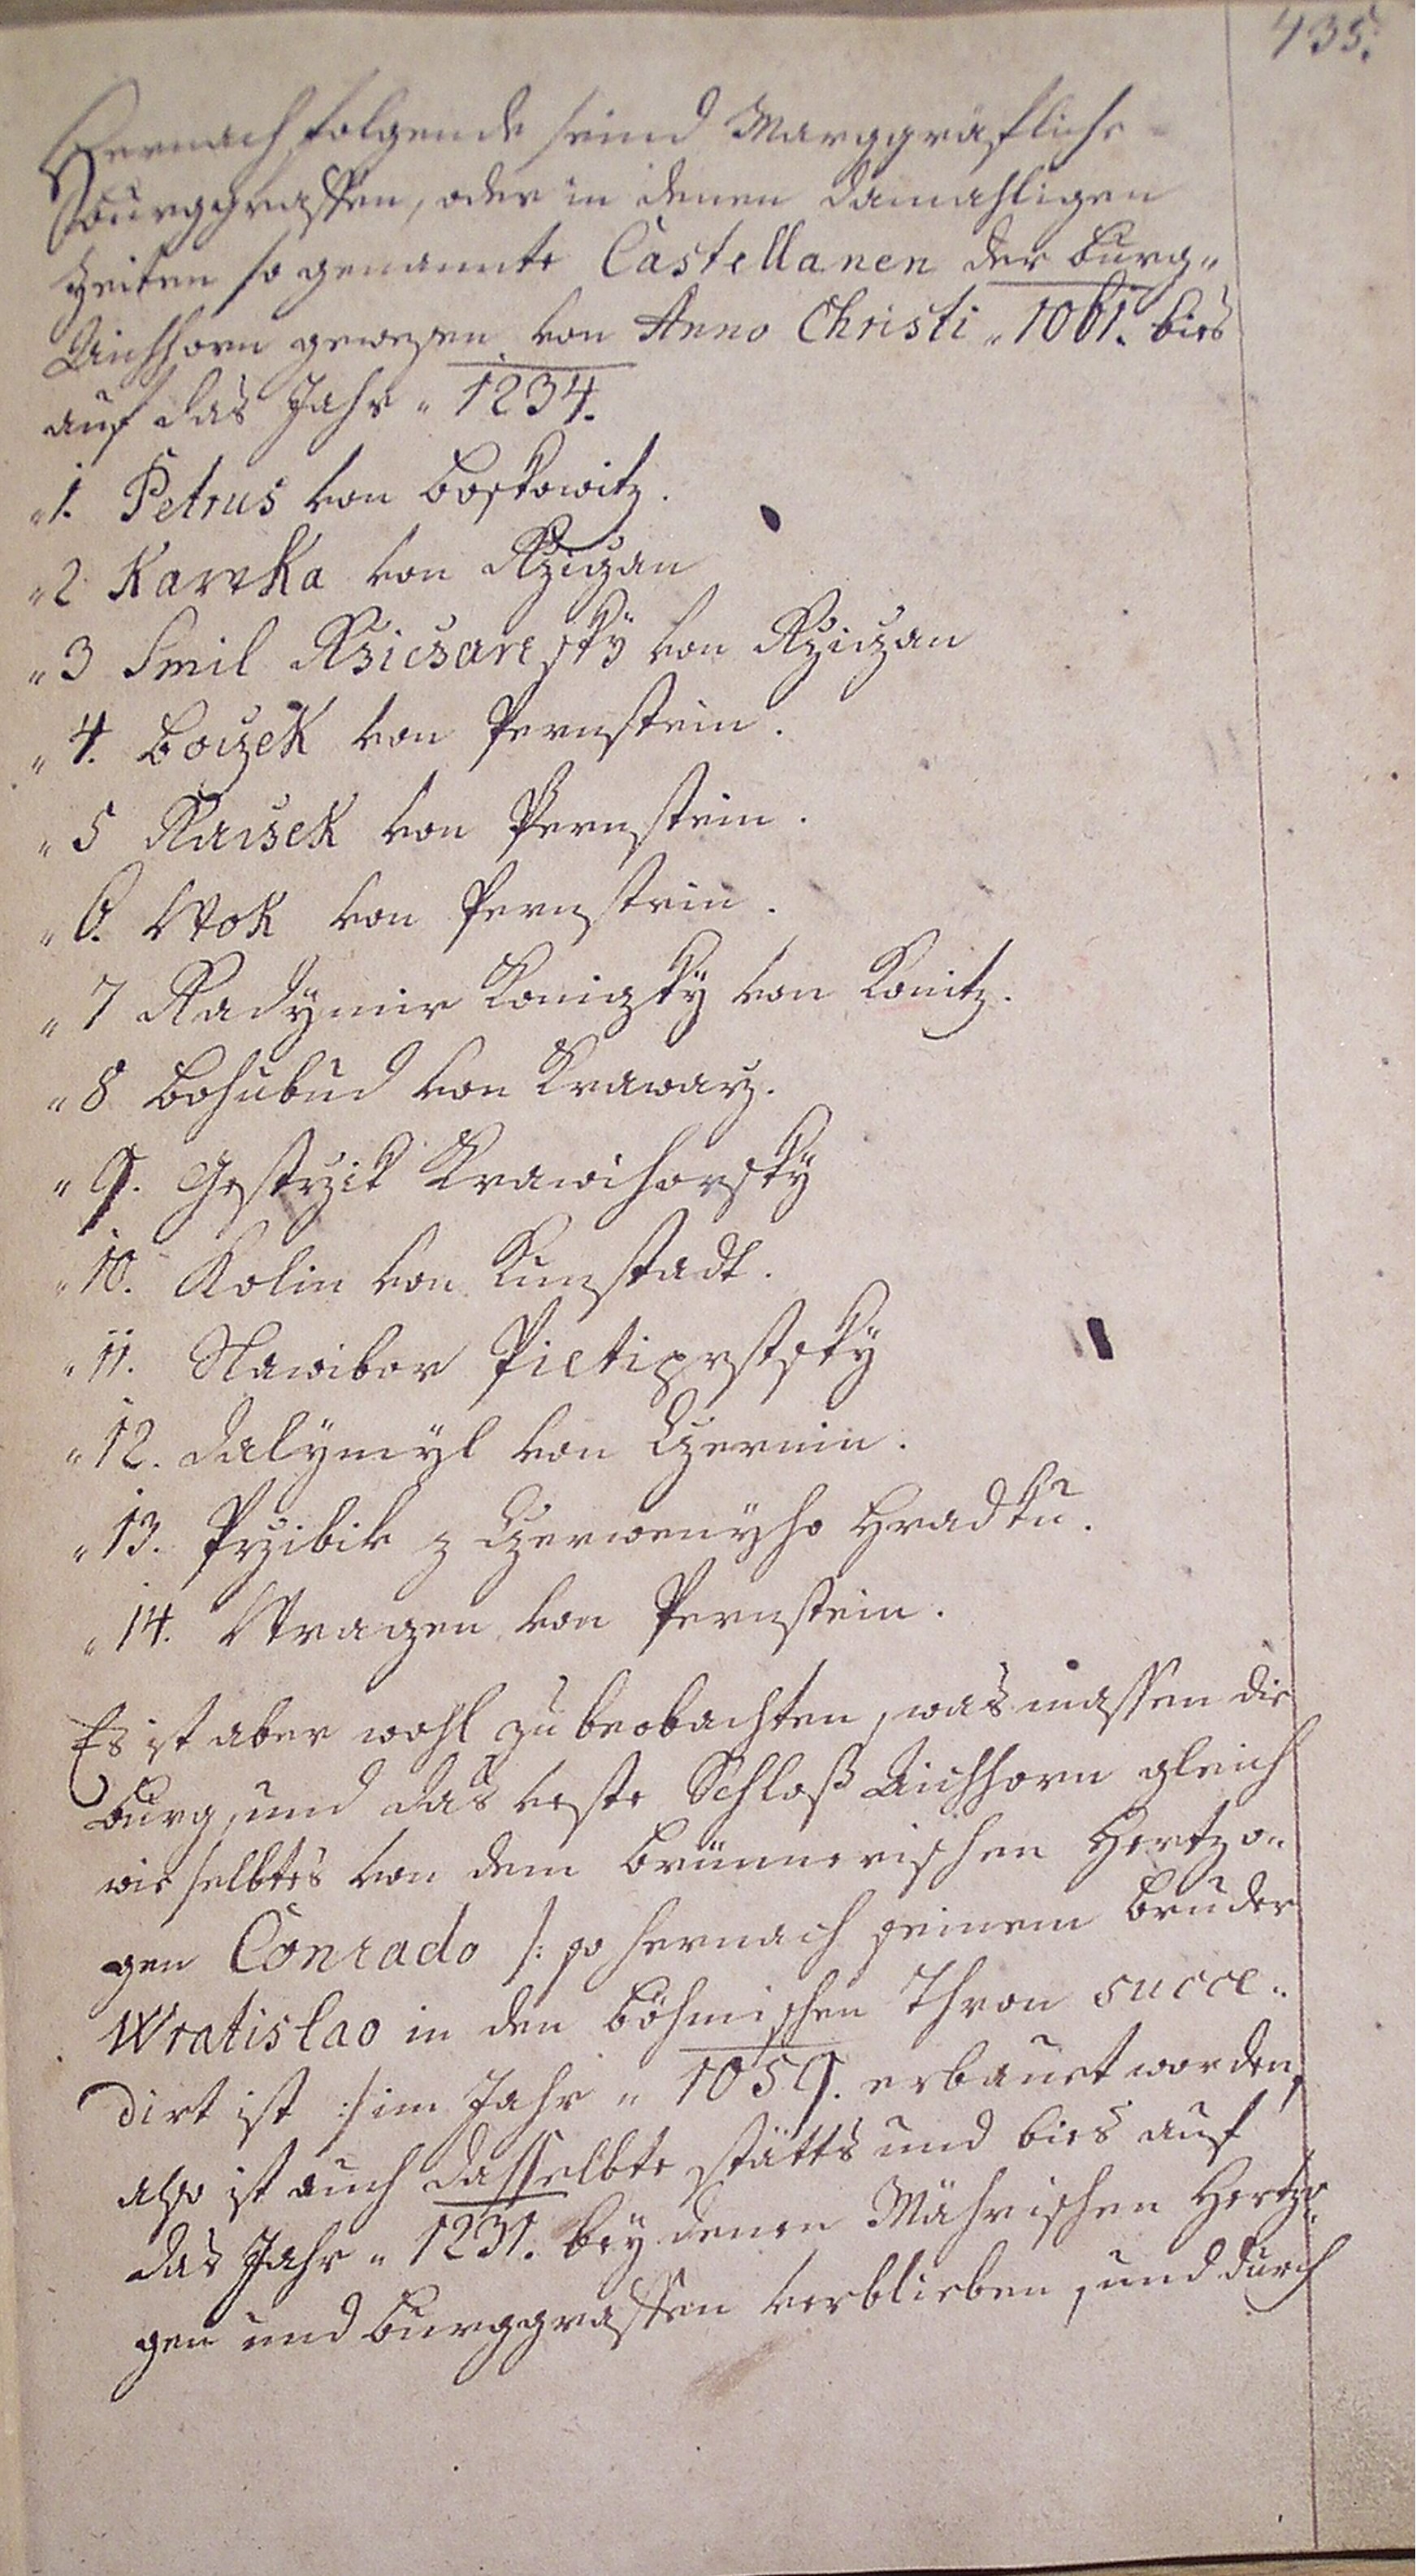 435.
Hernach folgende seind Marggräfliche
Burggraffen, oder in denen damahligen
Zeiten so genannte Castellanen der Burg„
Aichhorn gewesen von Anno Christi „ 1061. bies
auf das Jahr „ 1234.
„1. Petrus von Boskowitz.
„2 Karvka von Rziczan
„3 Smil Rziczansský von Rziczan
„4. Boczek von Pernstein.
„5 Raczek von Pernstein.
„6. Wok von Pernstein.
„7 Radÿmir Konizkÿ von Konitz.
„8 Bohubud von Krawarz.
„9. Gestrzib Krawihorskÿ
„10. Kolin von Kunstadt.
„11. Slawibor Pietiprstskÿ
„12. Dalÿmÿl von Czernin.
„13. Przibik z Czerwenÿho Hradku.
„14. Wragen von Pernstein.
Es ist aber wohl zu beobachten, was massen die
Burg, und das veste Schloß Aichhorn gleich
wie selbtes von dem Brünnerischen Hertzo„
gen Conrado /: so hernach seinem Bruder
Wratislao in den Böhmischen Thron succe„
dirt ist :/ im Jahr „ 1059. erbauet worden,
also ist auch dasselbte stätts und bies auf
das Jahr „ 1231. beÿ denen Mährischen Hertzo„
gen und Burggraffen verblieben, und durch